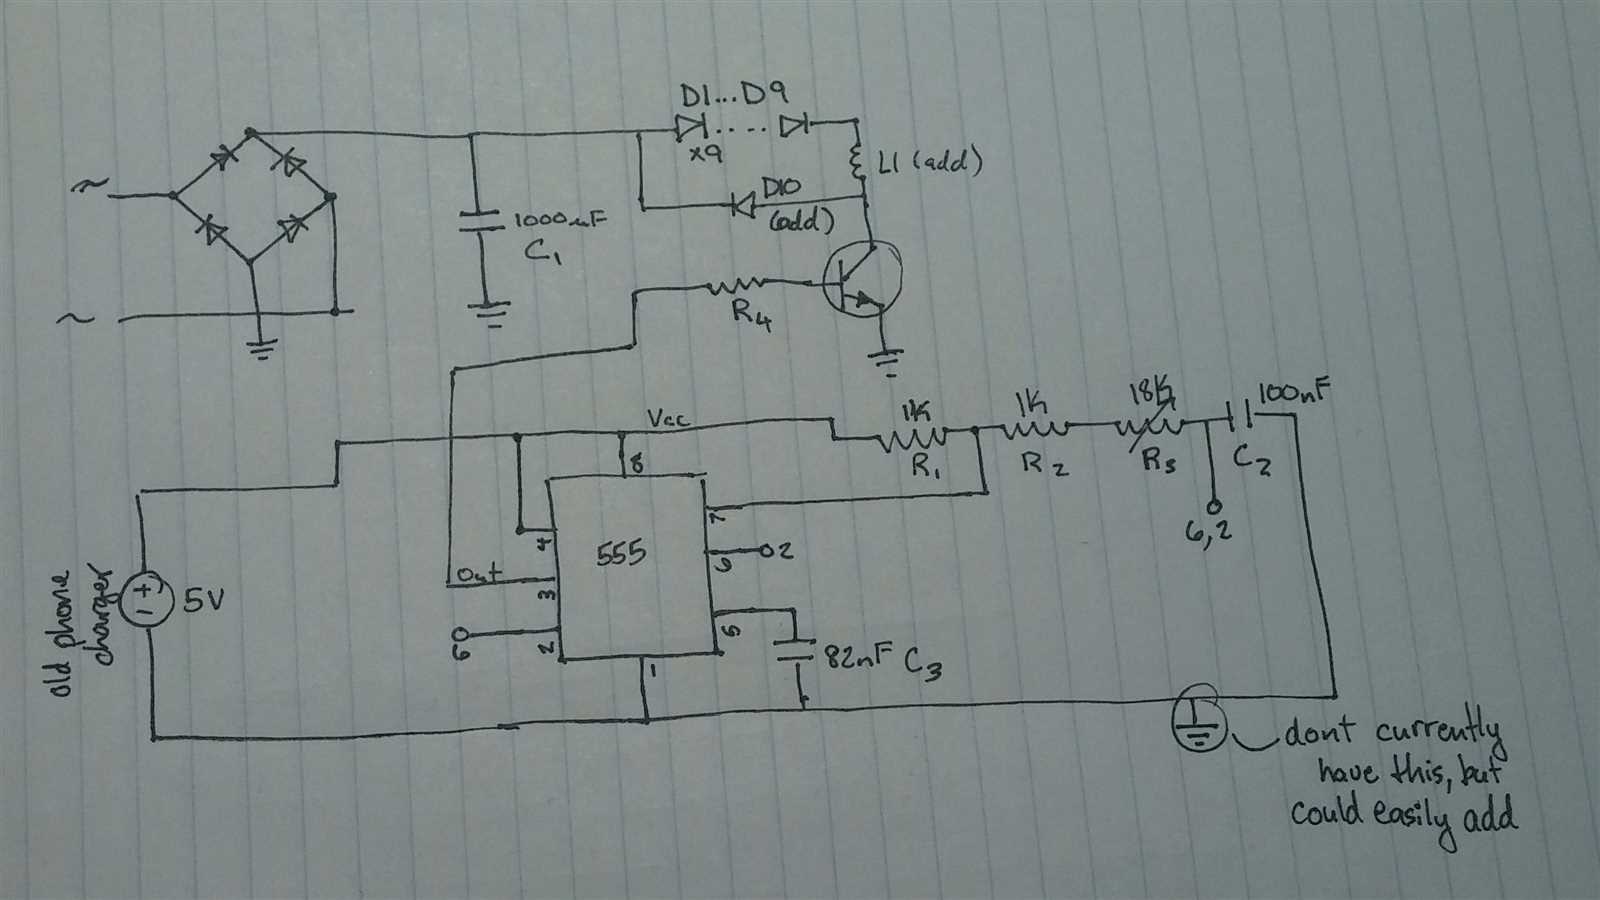 D1...D9
x9
L1 (add)
D10
(add)
~
1000uF
C1
~
R4
Vcc
1K
R1
1K
R2
18K
R3
100nF
C2
6,2
8
4
555
7
6
2
Out
3
5
6
2
1
82nF C3
old phone
charger
+
-
5V
dont currently
have this, but
could easily add